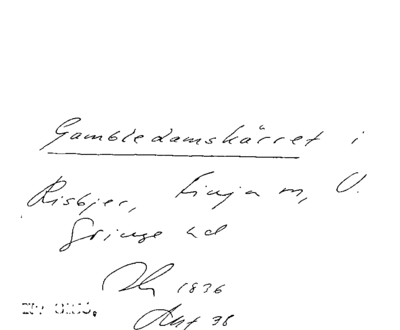 Gambledamskärret i
Risbjer, Finja m, V.
Gringe hd
1836
Akt 38